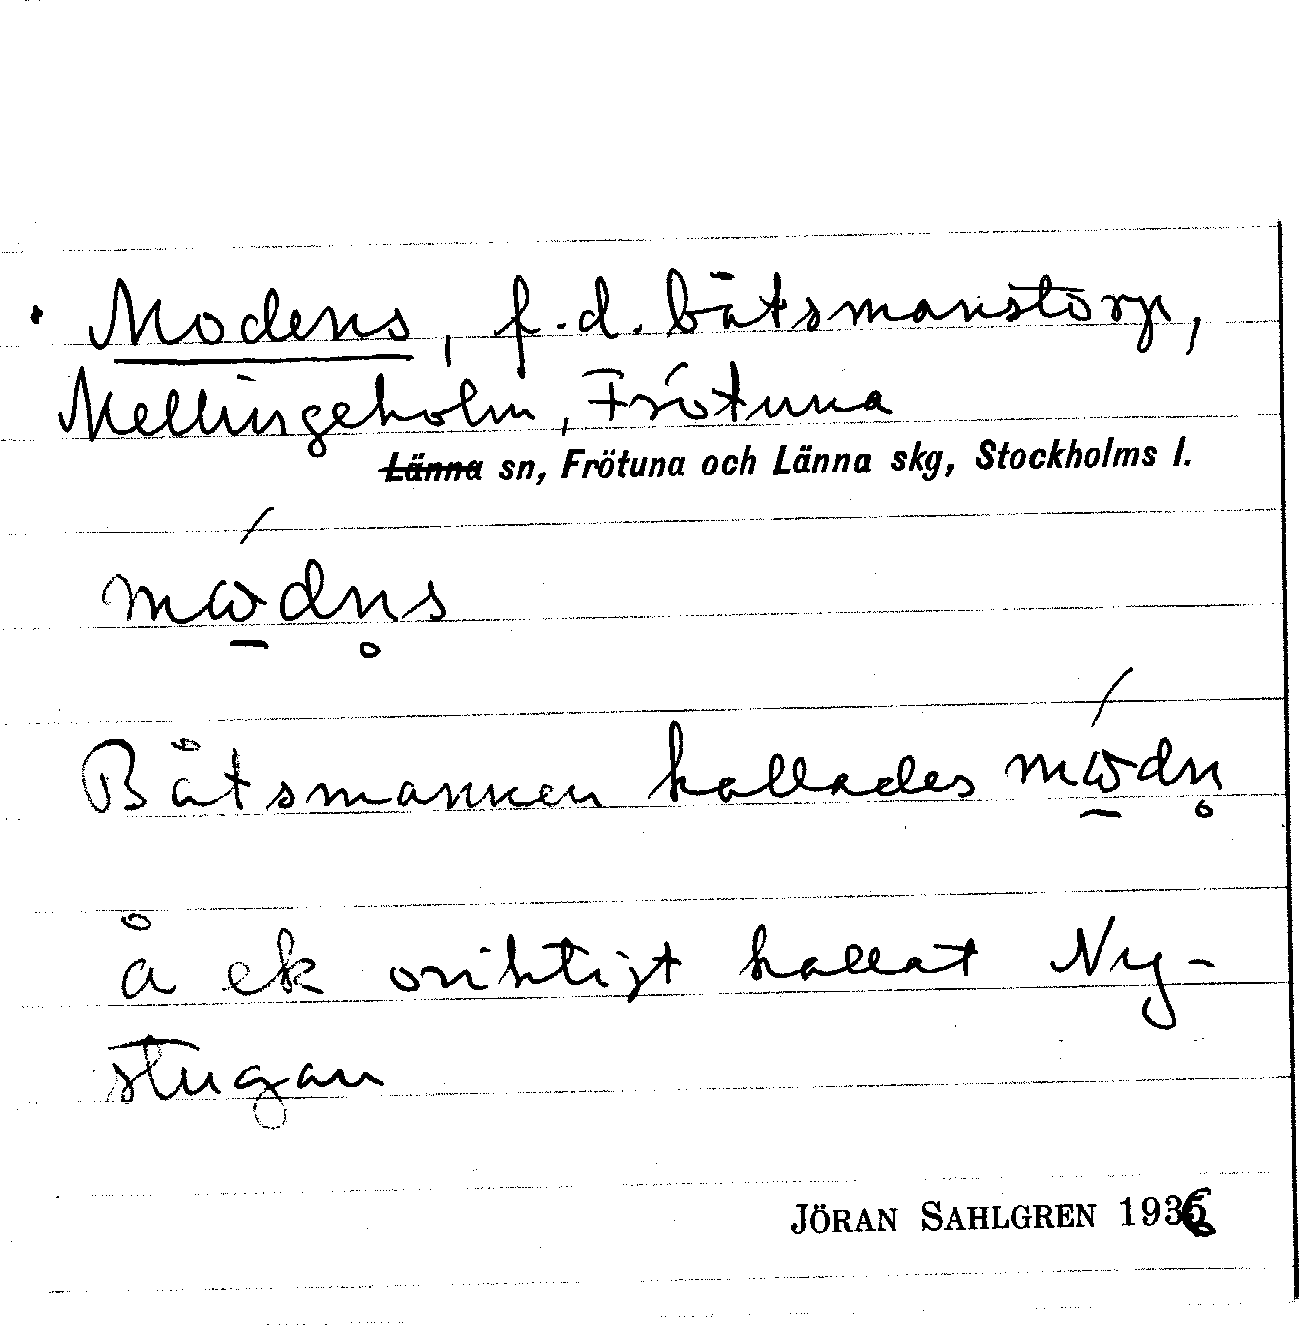 Modens, f.d. båtsmanstorp,
Mellingeholm, Frötuna
Länna sn, Frötuna och Länna skg, Stockholms l.
mώ̲dn̥s
Båtsmannen kallades mώ̲dn̥
å ek oriktigt kallat Ny-
stugan
JÖRAN SAHLGREN 1936